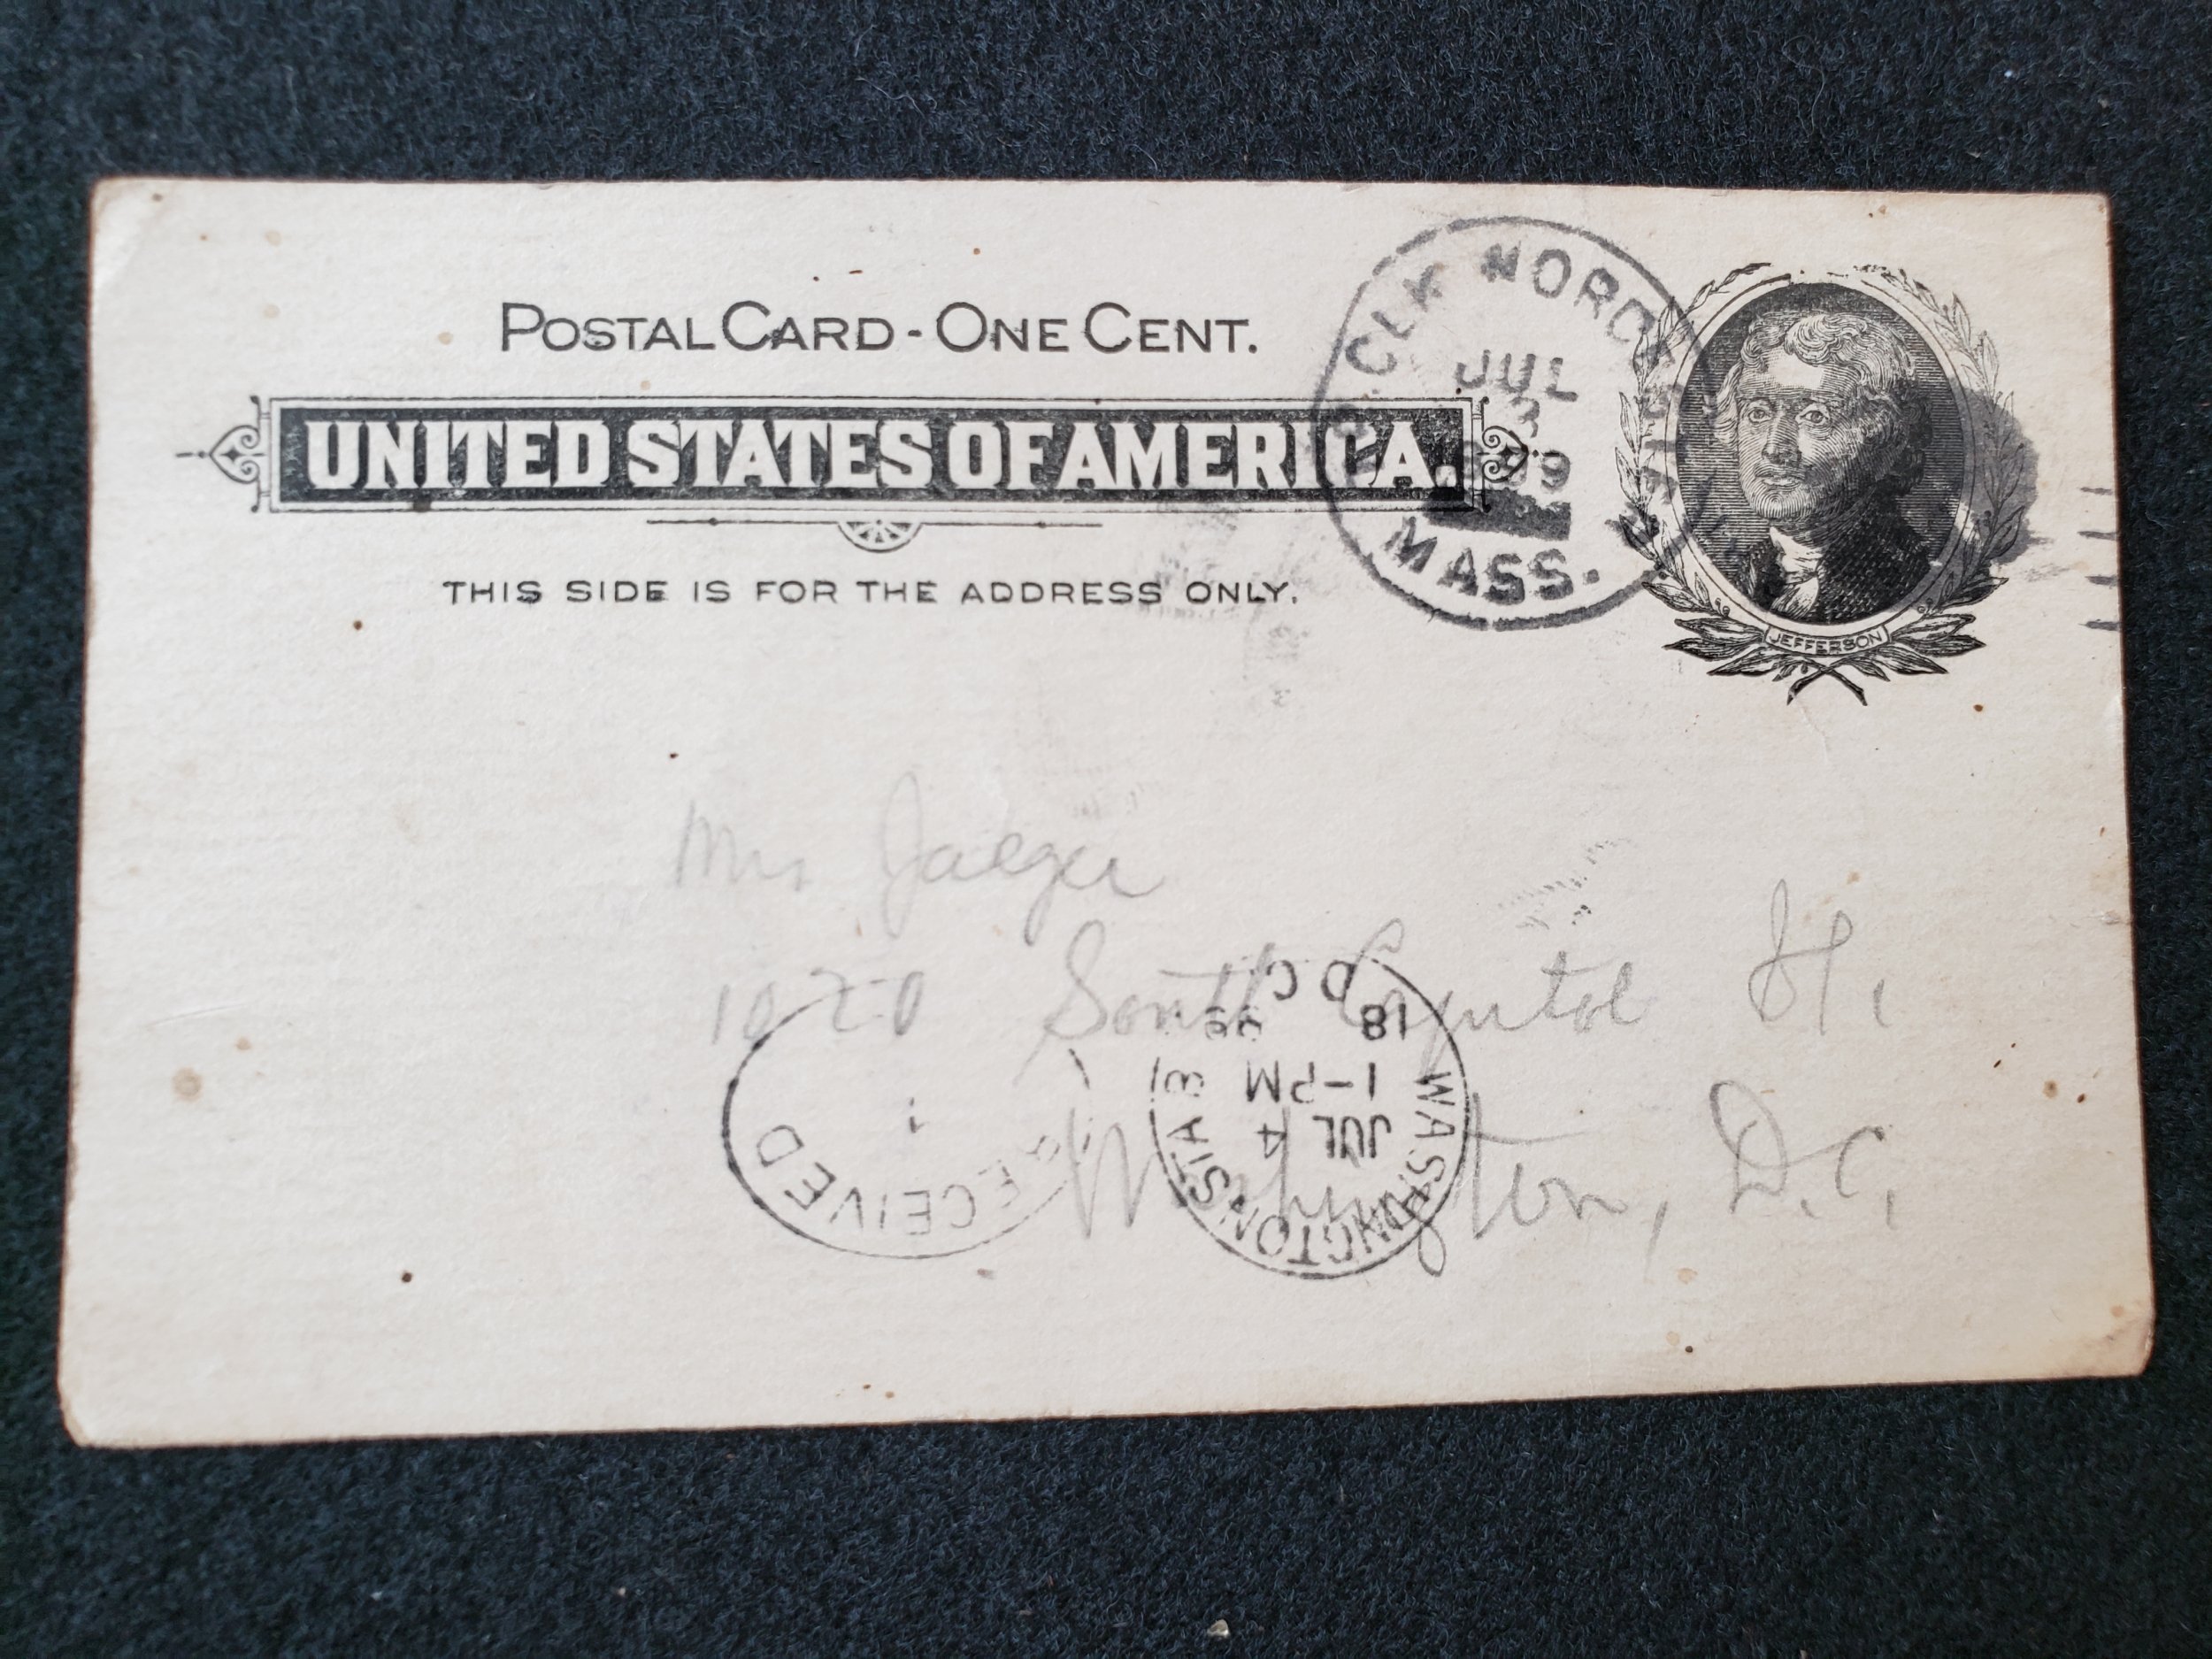 POSTAL CARD - ONE CENT.
UNITED STATES OF AMERICA.
THIS SIDE IS FOR THE ADDRESS ONLY.
JUL
3
99
MASS.
JEFFERSON
Mrs Jaeger
1020 South Capitol St.
Washington, D.C.
RECEIVED
1
WASHINGTON STA B
JUL 4
1-PM
18 99
D C